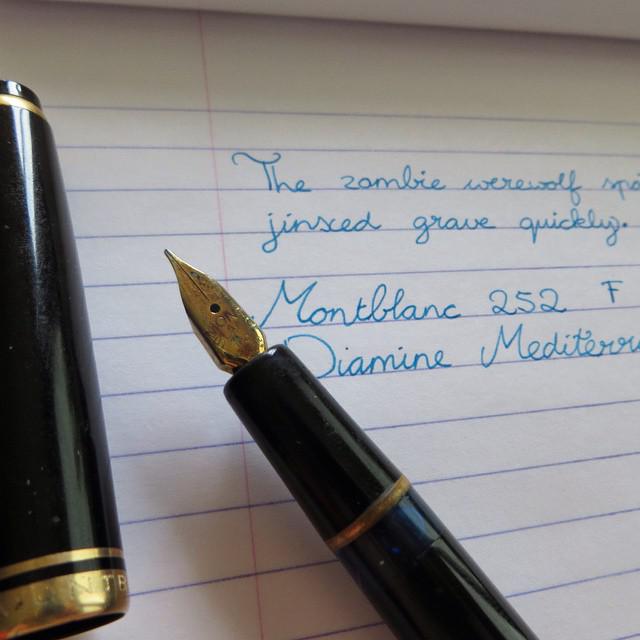 The zombie werewolf spi
jinxed grave quickly.
Montblanc 252 F
Diamine Mediterr